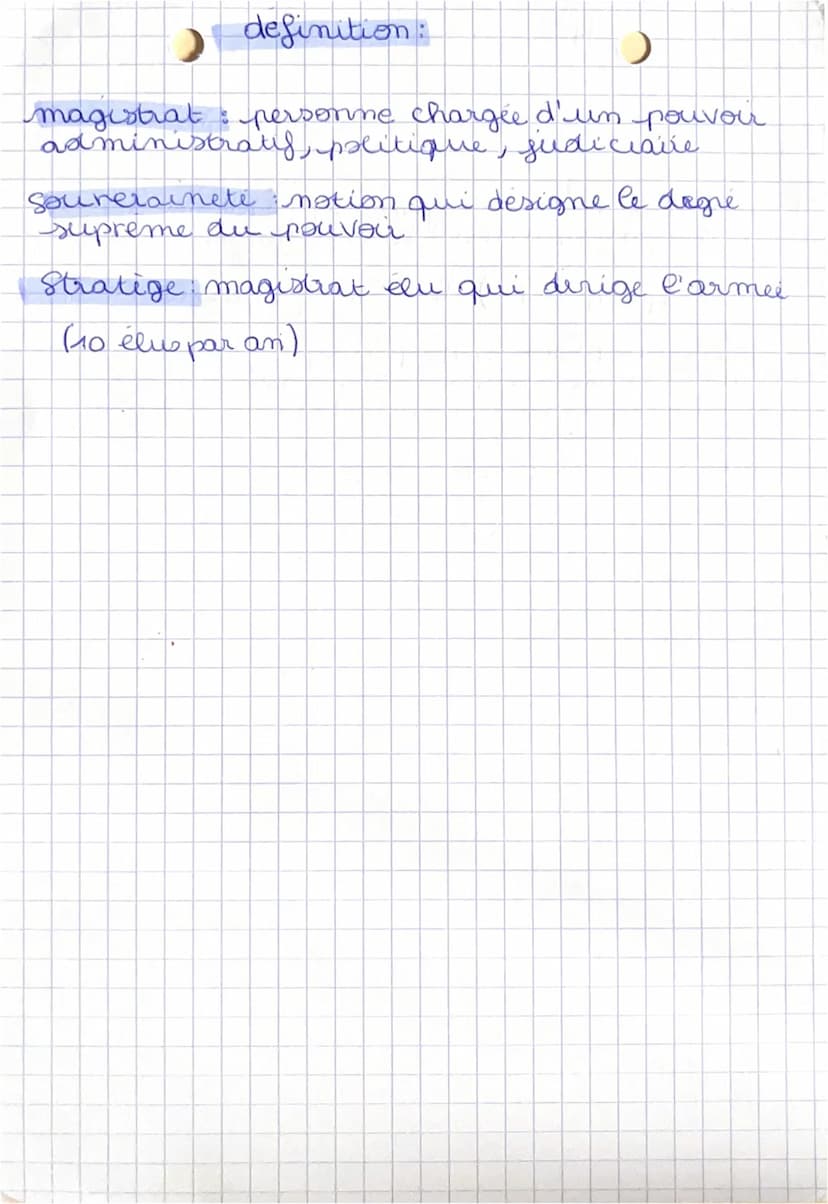 definition :
magistrat : personne chargée d'un pouvoir
administratif, politique, judiciaire
Souveraineté : notion qui désigne le degré
suprême du pouvoir
Stratège : magistrat élu qui dirige l'armée
(10 élus par an)